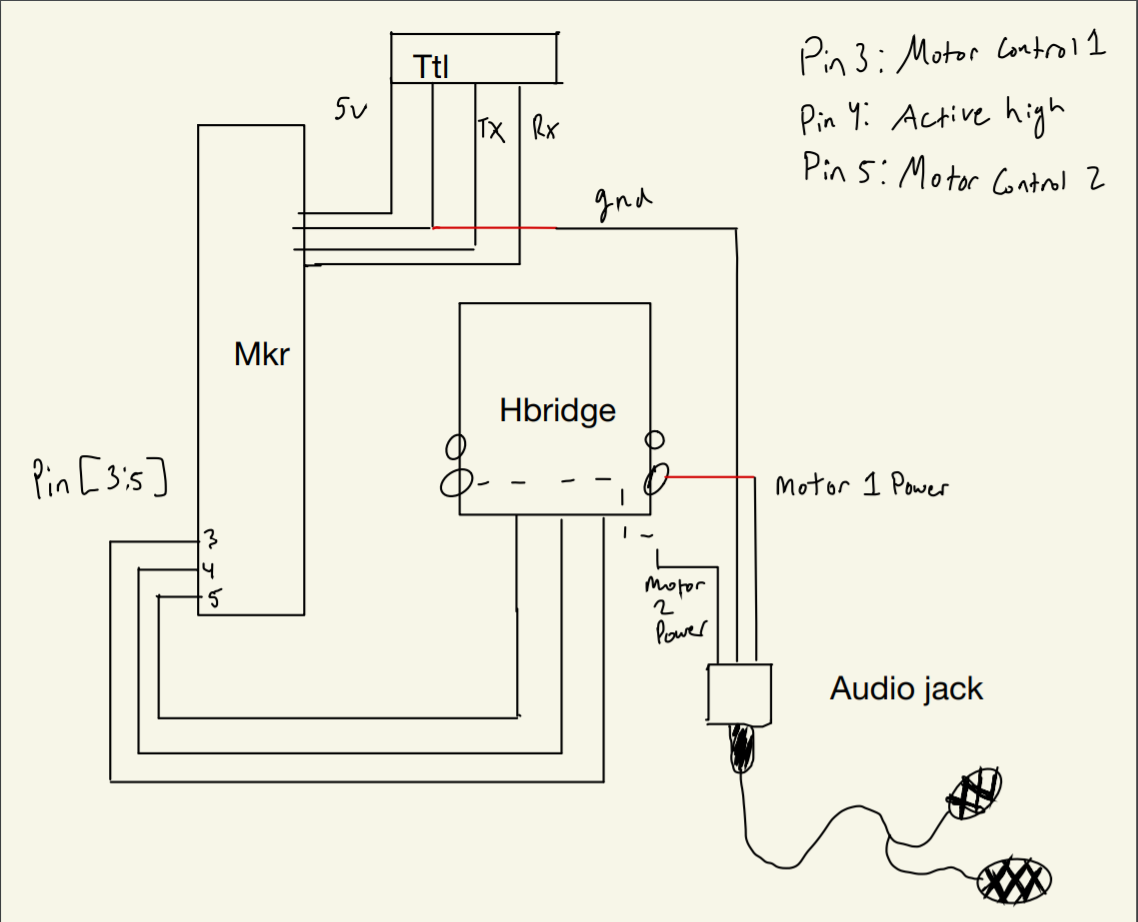 Ttl
5v
Tx
Rx
Pin 3: Motor Control 1
Pin 4: Active high
Pin 5: Motor Control 2
gnd
Mkr
Hbridge
Pin [3:5]
3
4
5
Motor 1 Power
Motor
2
Power
Audio jack